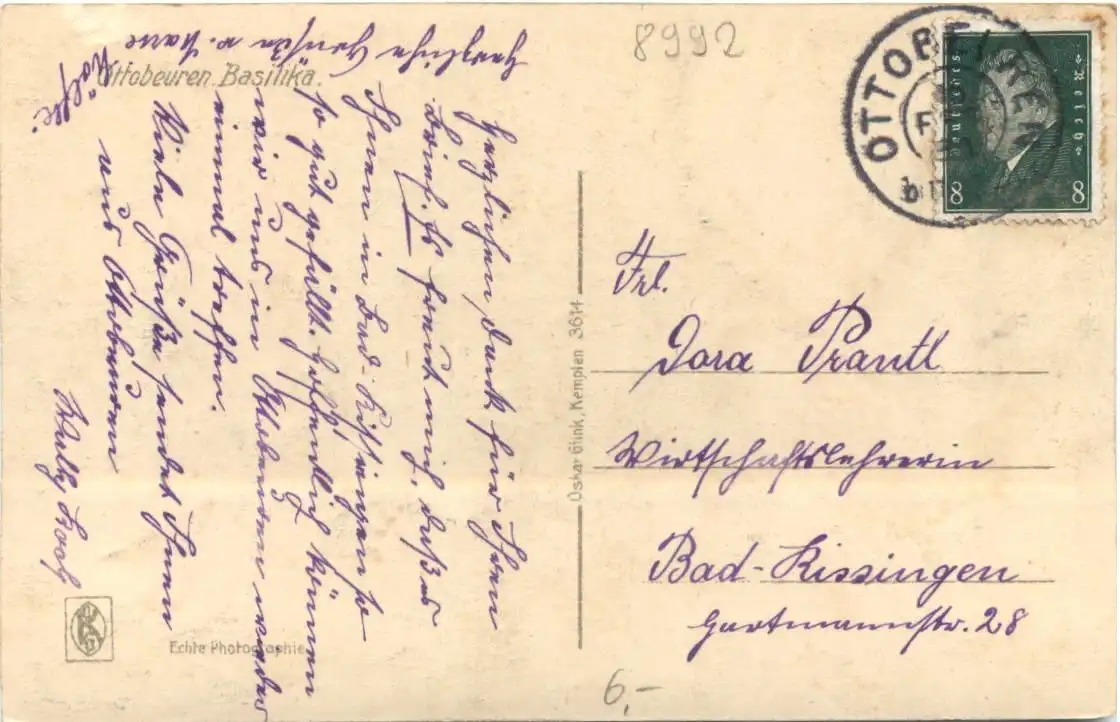 8992
OTTOBEUREN
Deutsches Reich
8 8
Ottobeuren. Basilika.
Herzliche Grüße v.
Herzlichen Dank für Ihren
Brief. Es freut mich, daß es
Ihnen in Bad-Kissingen so
so gut gefällt. Hoffentlich können
wir uns in Ottobeuren wieder
einmal treffen.
Viele Grüße sendet Ihnen
aus Ottobeuren
Frl.
Dora Prantl
Wirtschaftslehrerin
Bad-Kissingen
Hartmannstr. 28
Oskar Glink, Kempten 3614
Echte Photographie
6,-